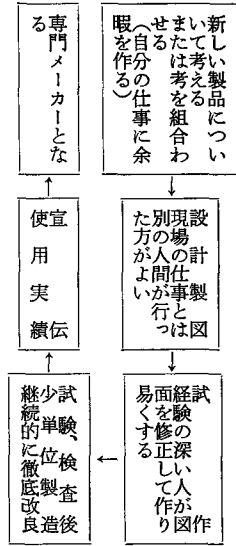 新しい製品につい
いて考える
または考を組合わ
せる
(自分の仕事に余
暇を作る)
設計製図
現場の仕事とは
別の人間が行っ
た方がよい
試作
経験の深い人が図
面を修正して作り
易くする
試験、検査後
少単位製造
継続的に徹底改良
宣伝
使用実績
専門メーカーとな
る